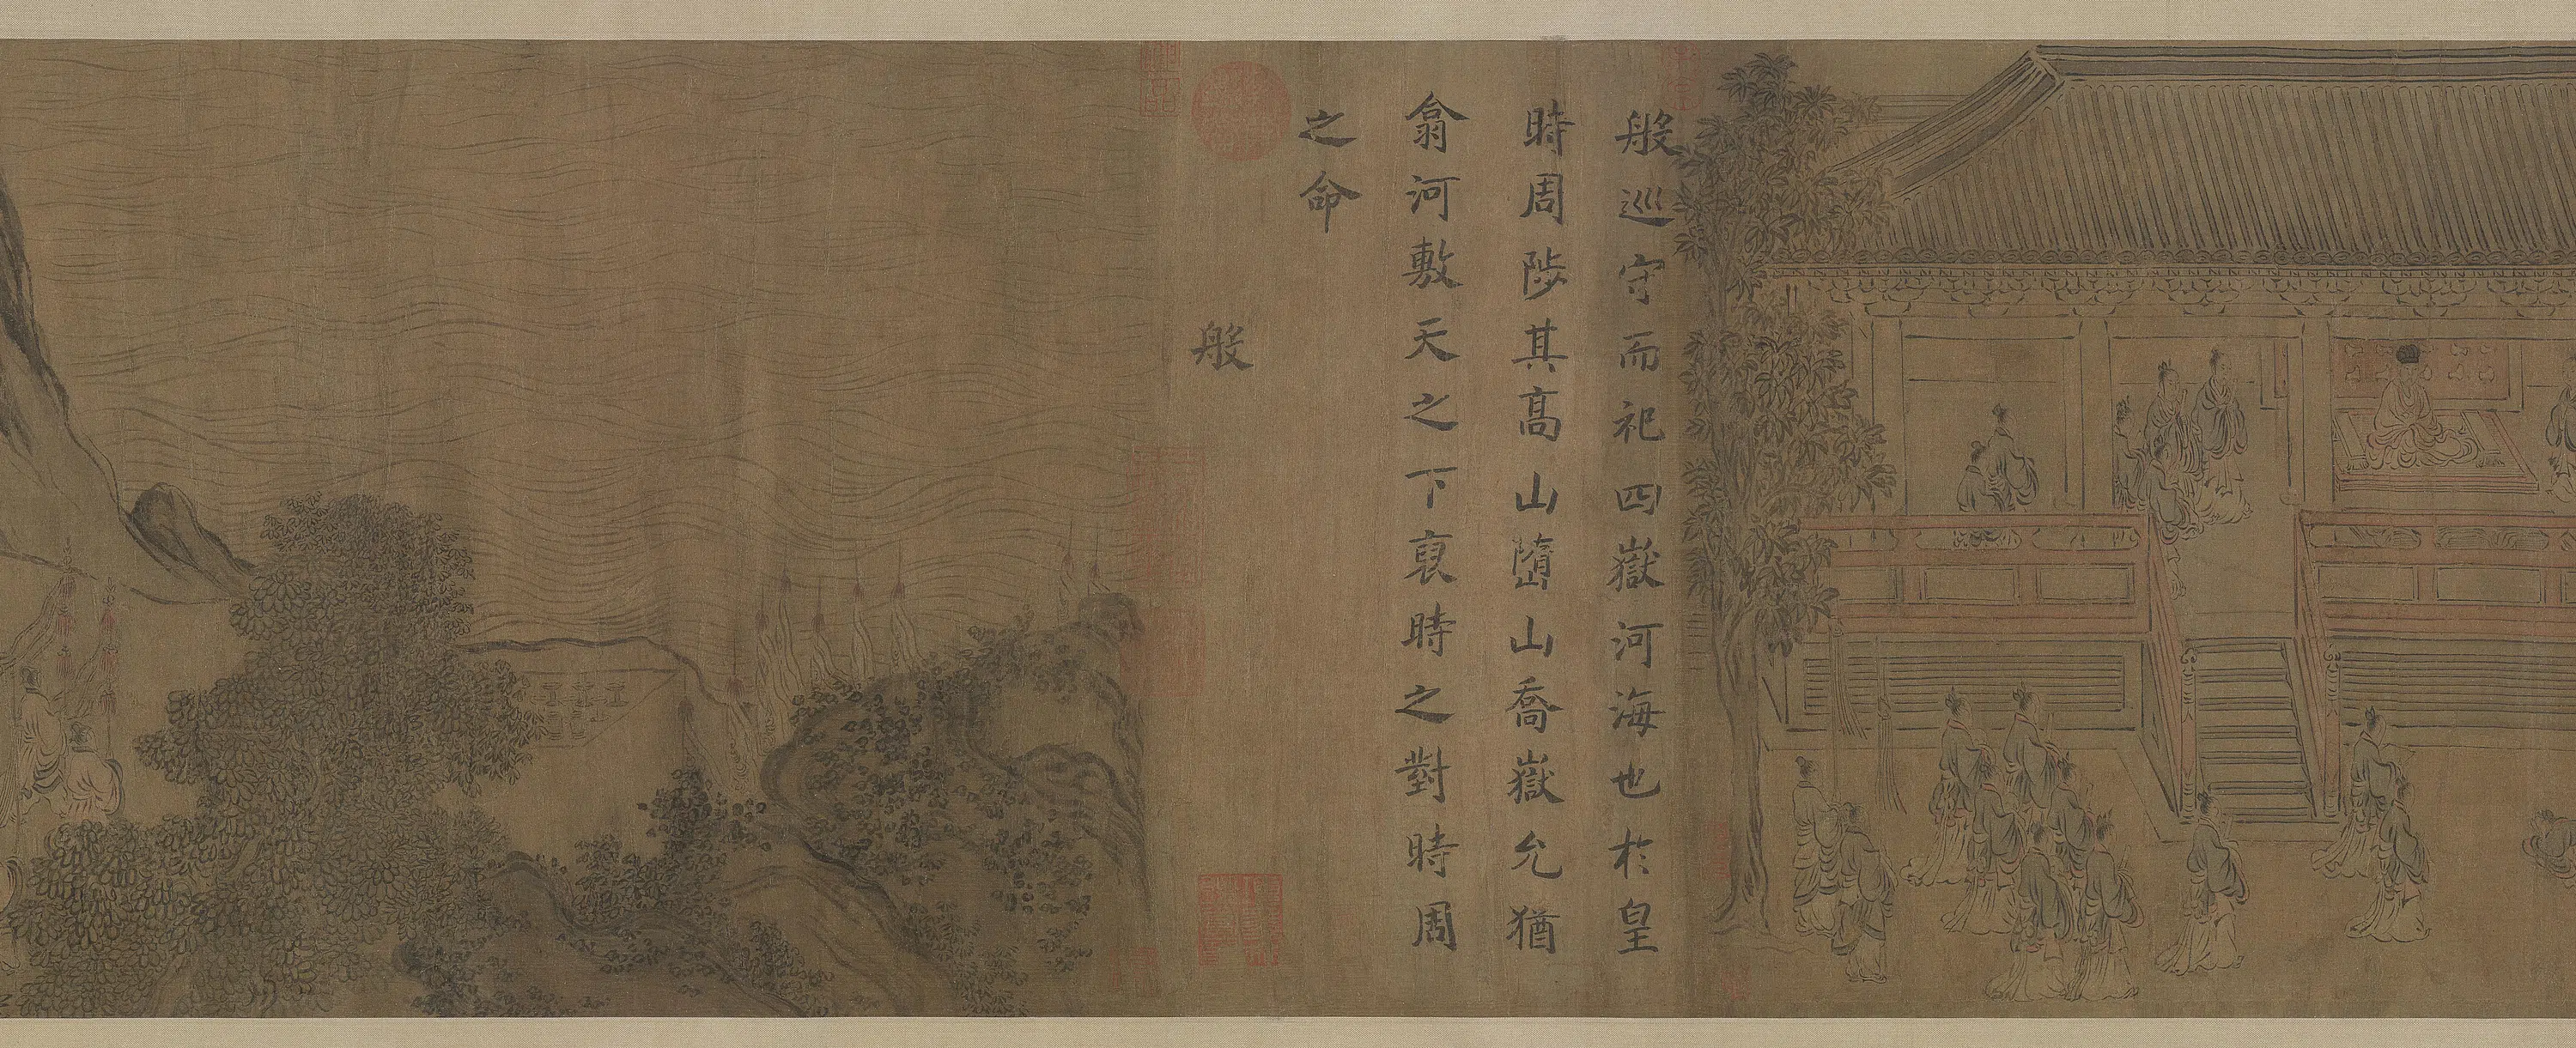 般巡守而祀四嶽河海也於皇
時周陟其高山嶞山喬嶽允猶
翕河敷天之下裒時之對時周
之命
般